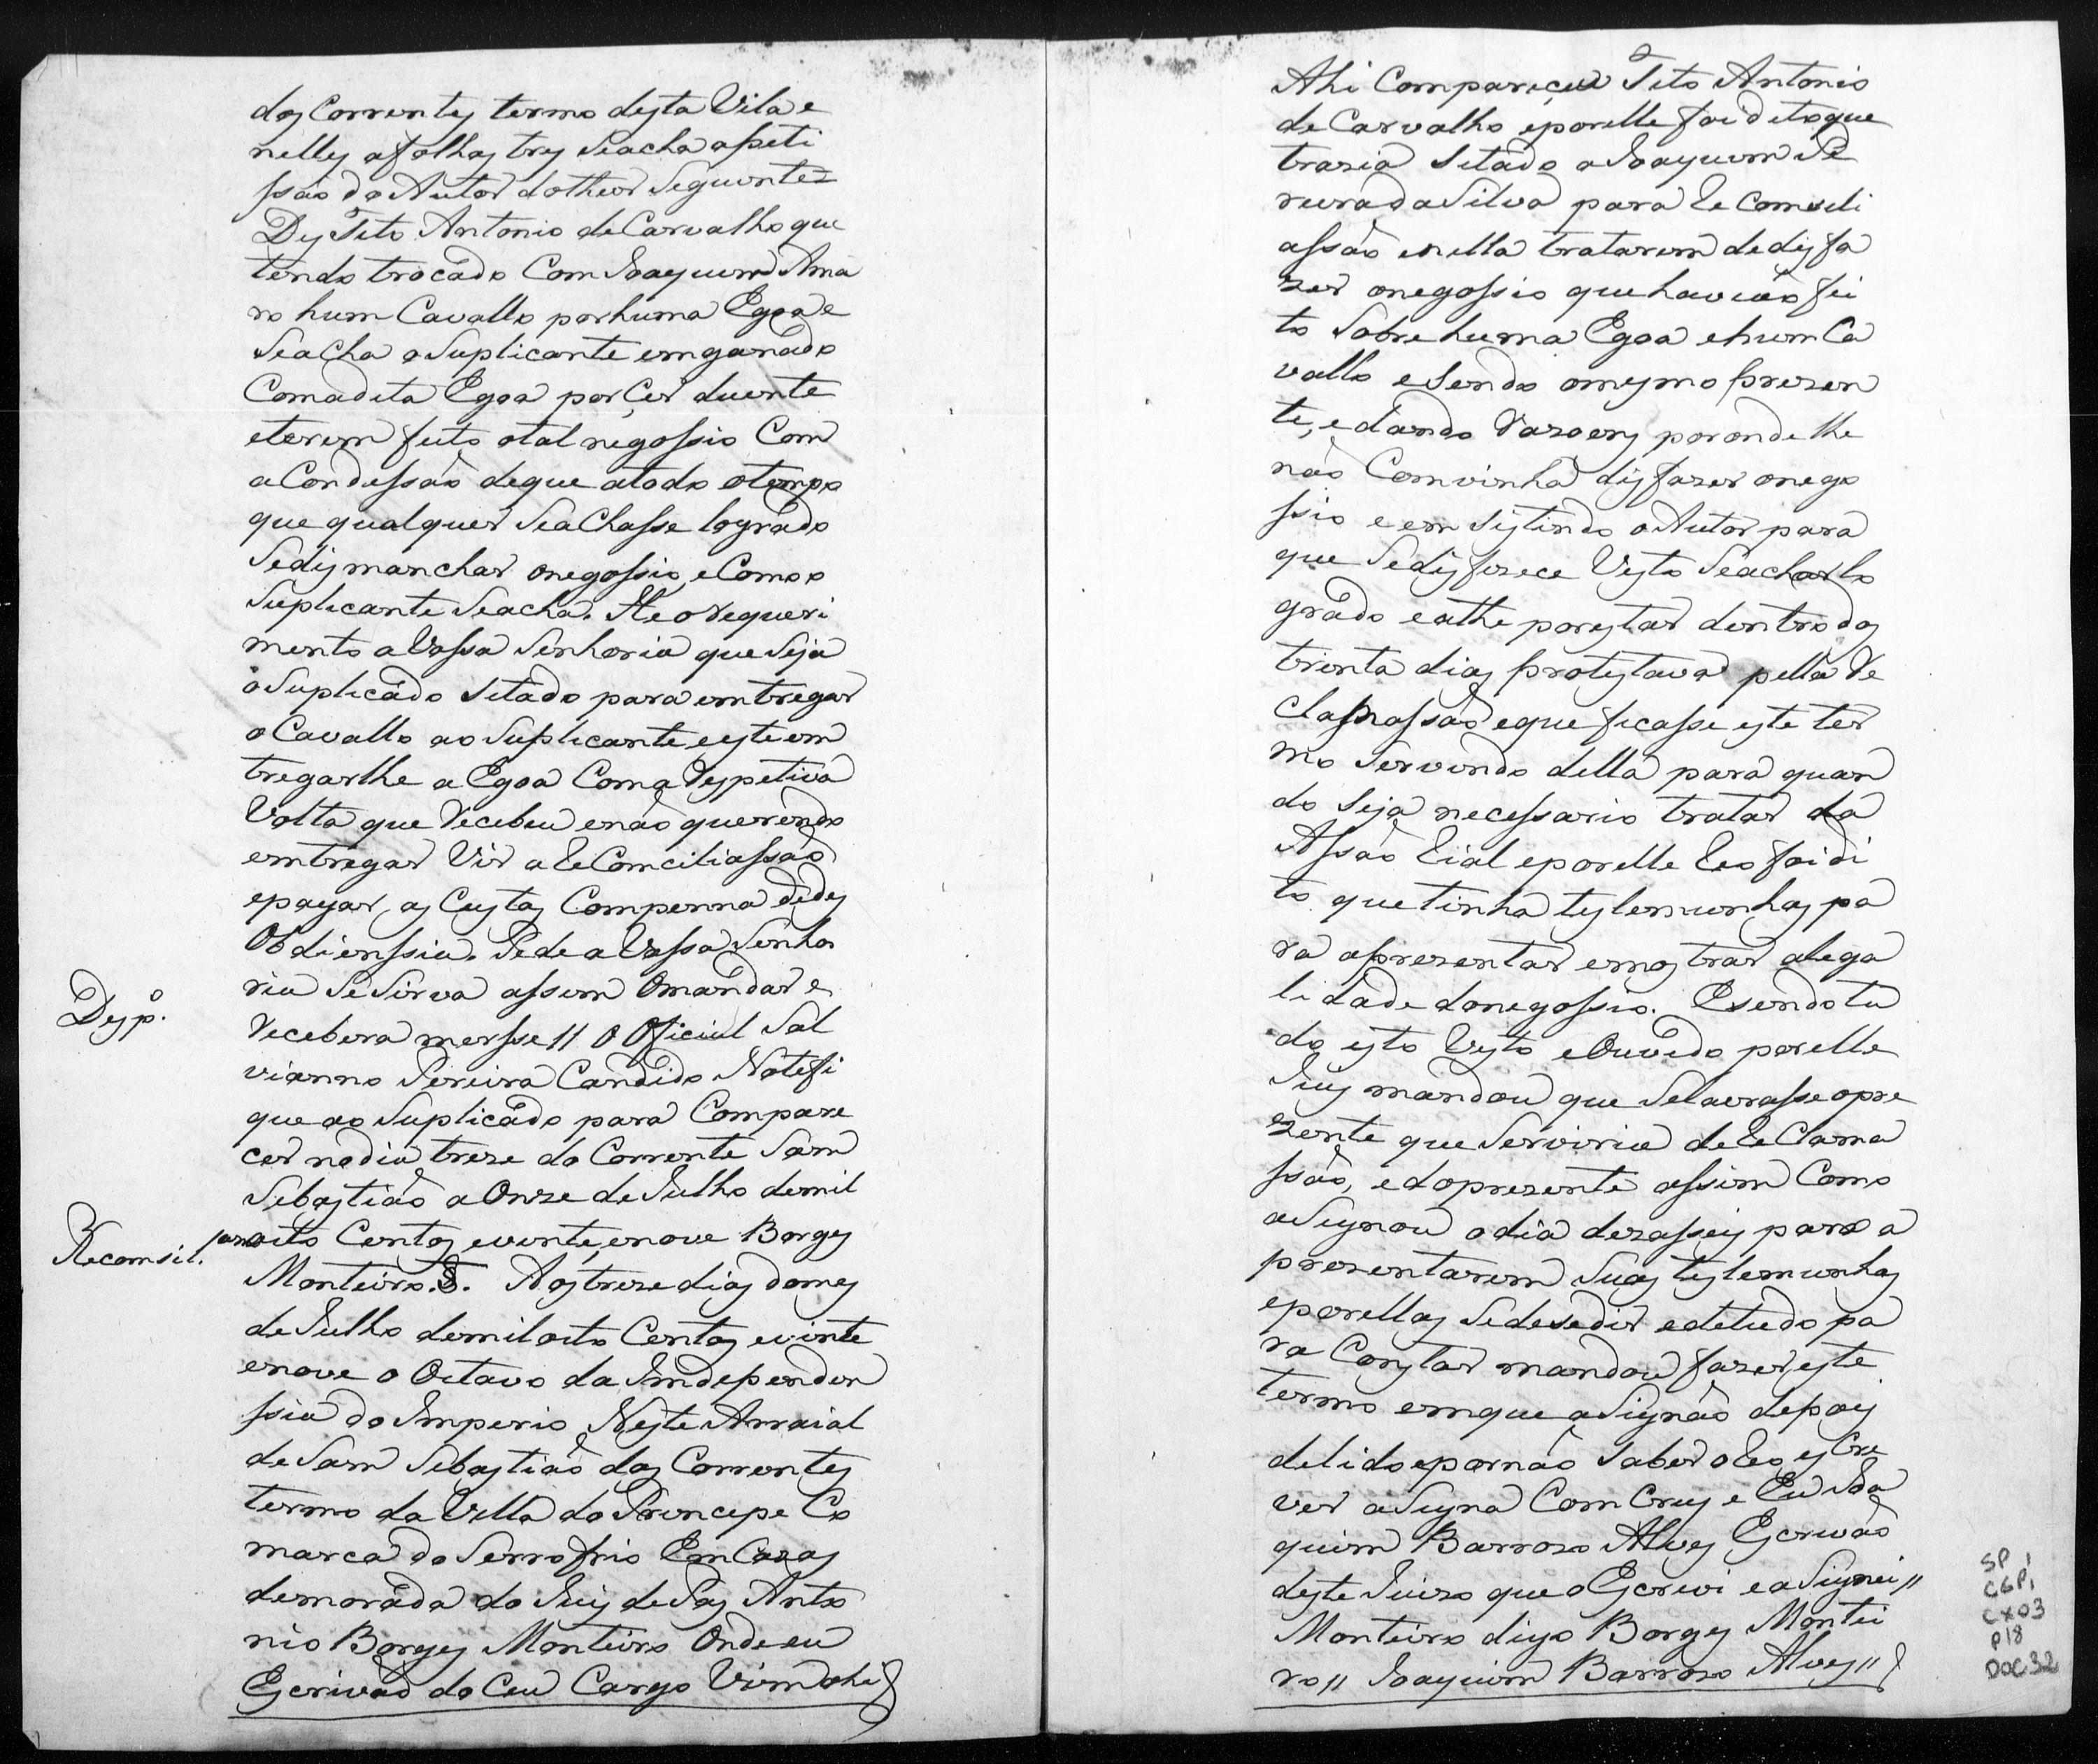 dos Correntes termo desta Vila e
nelles afolhas tres Seacha apeti
ssão do Autor dotheor Seguinte=
Dis Tito Antonio de Carvalho que
tendo trocado Com Joaquim Ama
ro hum Cavallo porhuma Egoa e
SeaCha o Suplicante emganado
Comadita Egoa porCer duente
eterem feito otal negossio Com
aCondissão deque atodo otempo
que qualquer SeaChasse logrado
Sedismanchar onegossio, eComo o
Suplicante Seacha. He o requeri
mento a Vossa Senhoria que Seja
o Suplicado Sitado para emtregar
o Cavallo ao Suplicante eeste em
tregarlhe a Egoa Coma respetiva
Volta que recebeu enão querendo
emtregar Vir a ReConciliassão
epagar as Custas Compenna dedes
Obdienssia. Pede a Vossa Senho
ria Se Sirva assim Omandar e
Desp.º
recebera mersse // O Oficial Sal
vianno Pereira Candido Notefi
que ao Suplicado para Compare
cer nodia treze do Corrente Sam
Sebastião a Onze de Julho demil
Reconsil.
oito Centos evinte, enove Borges
Monteiro. Aos treze dias domes
de Julho demil oito Centos evinte
enove o Octavo da Independen
ssia do Imperio Neste Arraial
de Sam Sebastião dos Correntes
termo da Villa do Princepe Co
marca do Serro frio Em Cazas
demorada do Juis de Pas Anto
nio Borges Monteiro Onde eu
Escrivão do Ceu Cargo Vim ahi
Ahi Compareceu Tito Antonio
de Carvalho eporelle foi ditoque
trazia Sitado a Joaquim Pe
reira da Silva para Reconsili
assão enella tratarem dedisfa
zer onegossio quehavião fei
to Sobrehuma Egoa ehum Ca
vallo eSendo omesmo prezen
te, edando razoens poronde lhe
não Comvinha disfazer onego
ssio e em sistindo o Autor para
que Sedisfizece Visto Seacharlo
grado eathe porestar dentro dos
trinta dias protestava pella re
clamassão eque ficasse este ter
mo Servindo della para quan
do Seja necessario tratar da
Assão Rial eporelle Reo foi di
to que tinha testemunhas pa
ra aprezentar emostrar alega
lidade donegossio. ESendotu
do isto Visto eOuvido porelle
Juis mandou que Selavrasse opre
zente que Serviria de ReClama
ssão, edoprezente assim Como
aSignou odia dezasseis para a
prezentarem Suas testemunhas
eporellas Sedesedir edetudo pa
ra Constar mandou fazer este
termo emque aSignão depois
delido epornão Saber o Reo escre
ver aSigna Com Crus e Eu Joa
quim Barrozo Alves Escrivão
deste Juizo que o Escrivi e aSignei //
Monteiro digo Borges Montei
ro // Joaquim Barrozo Alves //
SP
CGP1
CX03
P18
DOC32